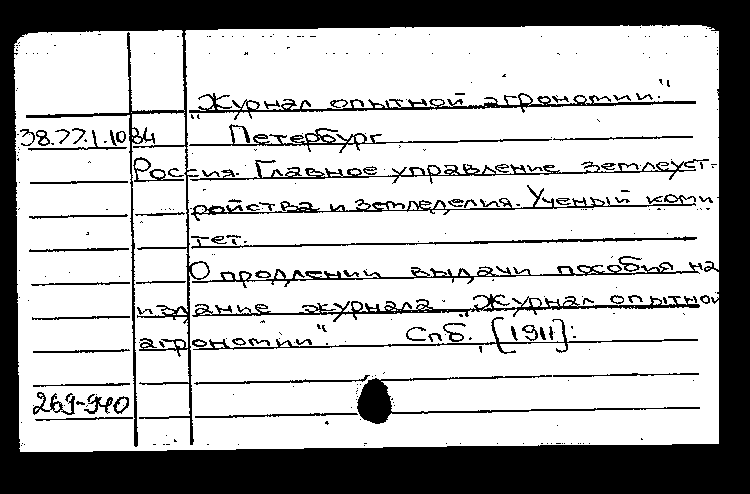 „Журнал опытной агрономии."
38.77.1.1034 Петербург
Россия. Главное управление землеуст-
ройства и земледелия. Ученый коми-
тет.
О продлении выдачи пособия на
издание журнала „Журнал опытной
агрономии". Спб., [1911].
269-940